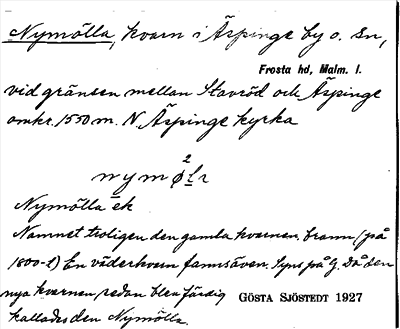 Nymölla, kvarn i Äspinge by o. sn,
Frosta hd, Malm. l.
vid gränsen mellan Stavröd och Äspinge
omkr. 1550 m. N. Äspinge kyrka
2
nymølr
Nymölla ek
Namnet troligen den gamla kvarnen brann (på
1800-t) En väderkvarn fanns även. Syns på G. Då den
nya kvarnen redan blev färdig
GÖSTA SJÖSTEDT 1927
kallades den Nymölla.